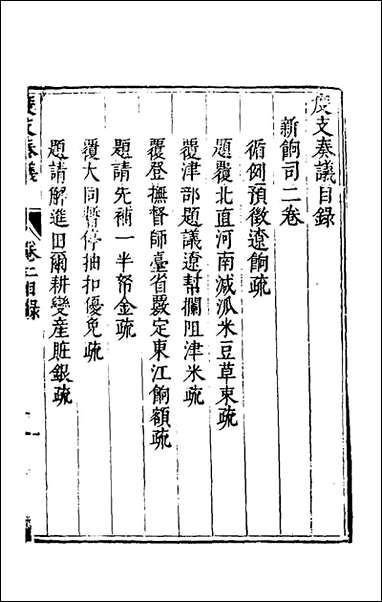 度支奏議目錄
新餉司二卷
循例預徵遼餉疏
題覆北直河南減派米豆草束疏
覆津部題議遼幫攔阻津米疏
覆登撫督師臺省覈定東江餉額疏
題請先補一半帑金疏
覆大同暫停抽扣優免疏
題請解進田爾耕變產賍銀疏
度支奏議
卷二目錄